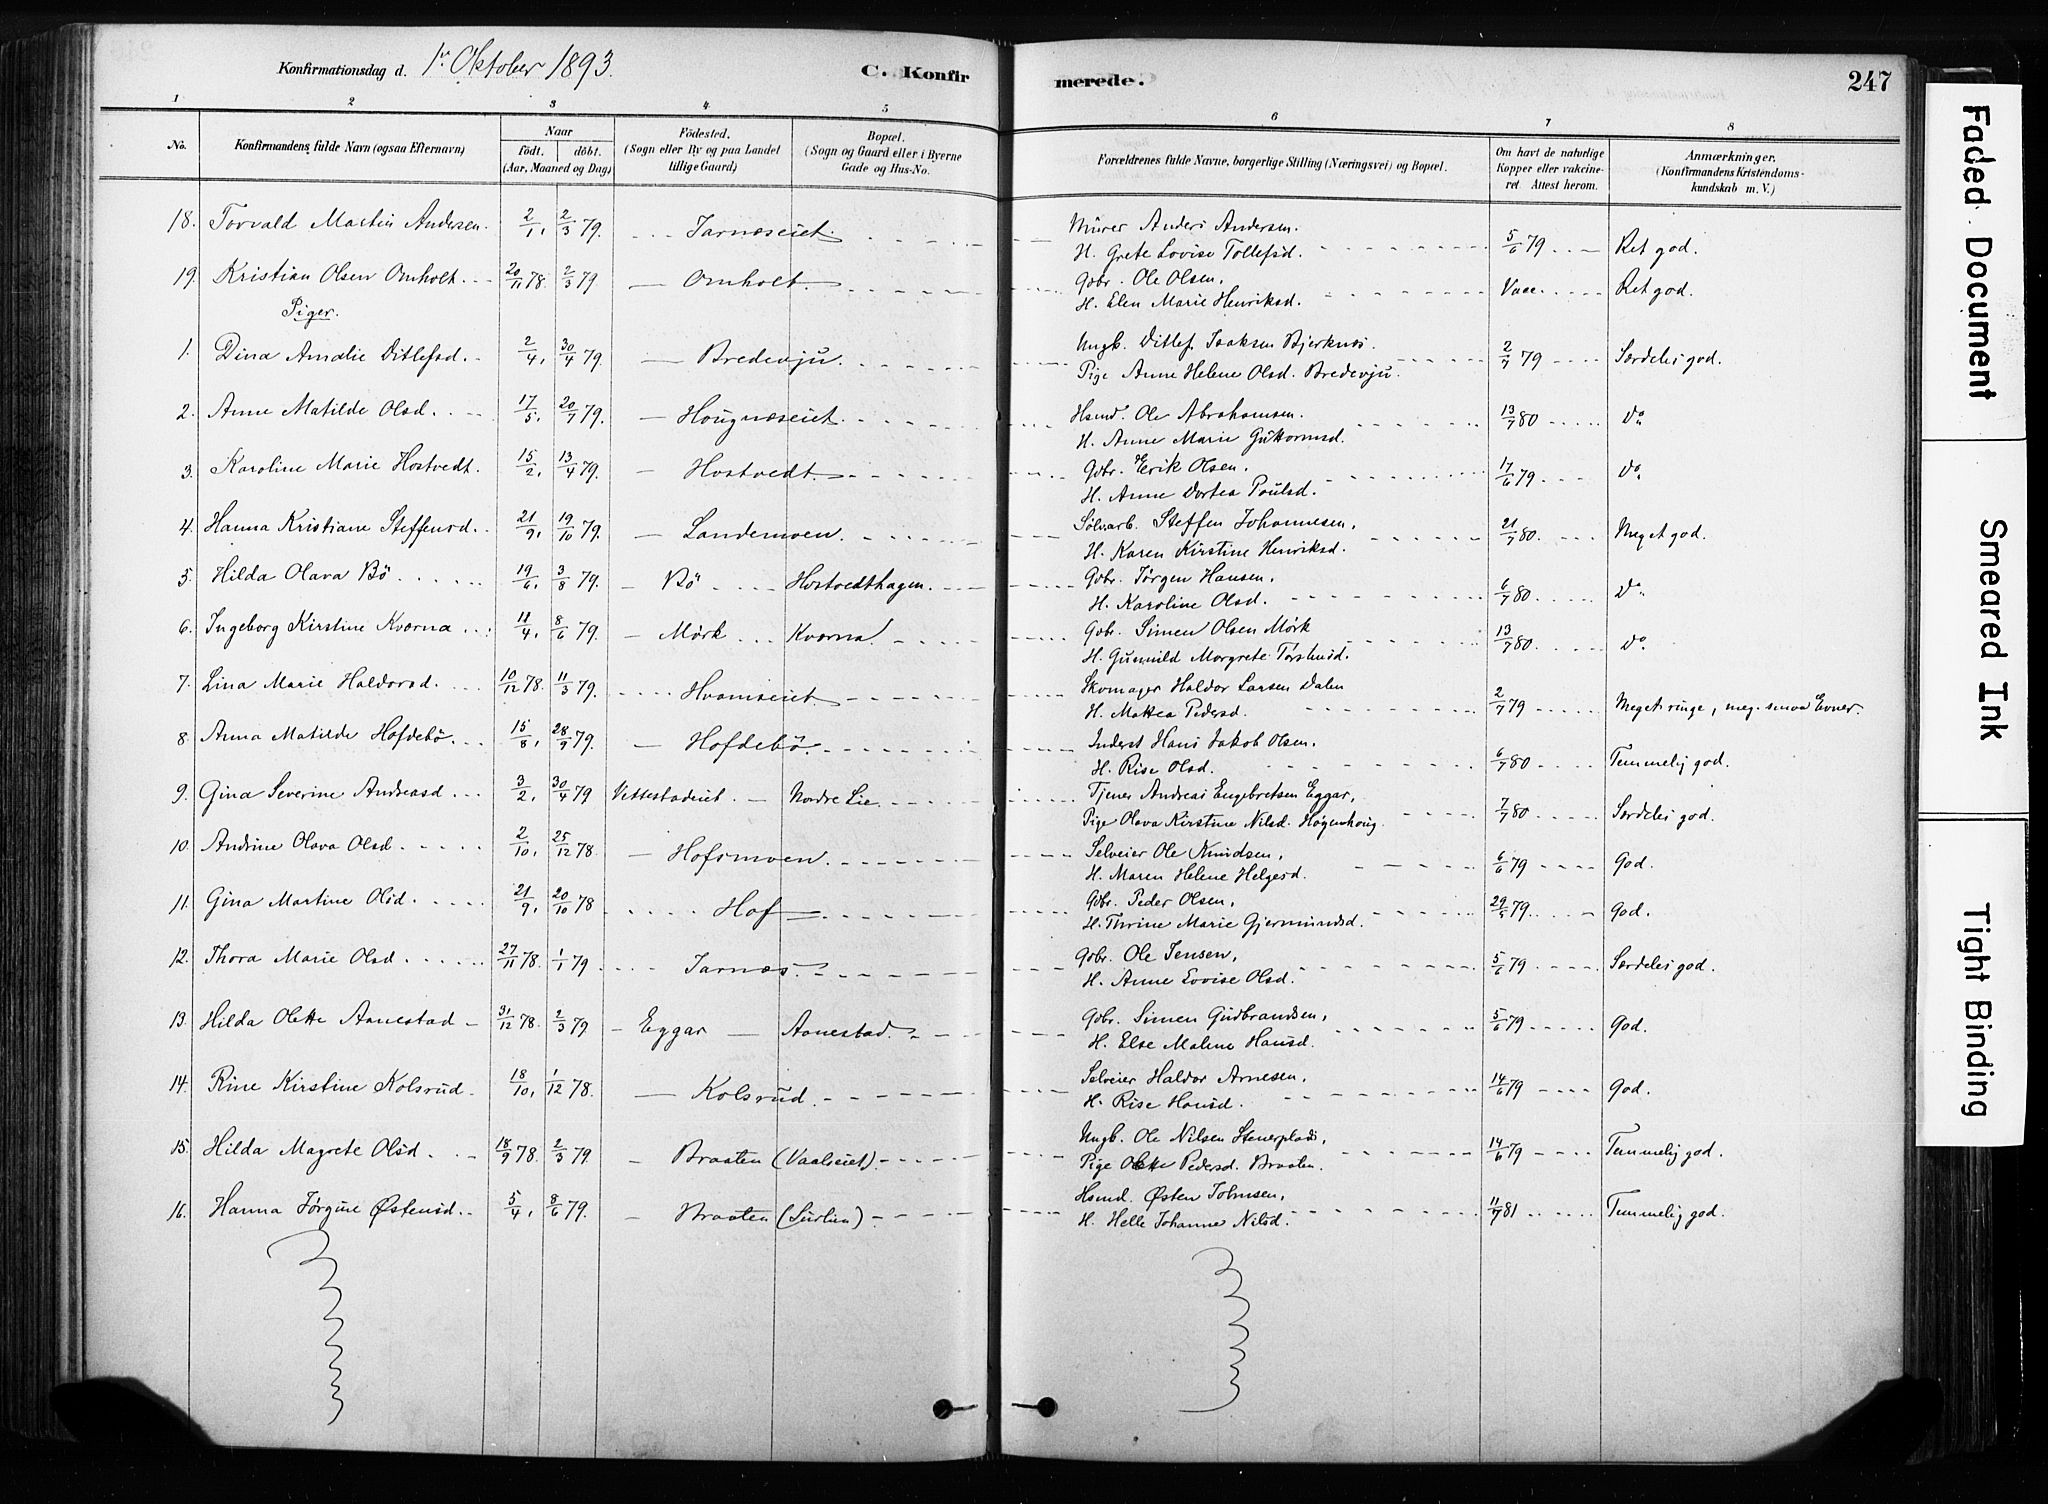 Konfirmationsdag d. 1ste Oktober 1893. C. Konfirmerede. 247
1 2 3 4 5 6 7 8
No. Konfirmandens fulde Navn (ogsaa Efternavn) Naar födt. döbt. (Aar, Maaned og Dag) Födested. (Sogn eller By og paa Landet tillige Gaard) Bopæl. (Sogn og Gaard eller i Byerne Gade og Hus-No. Forældrenes fulde Navne, borgerlige Stilling (Næringsvei) og Bopæl. Om havt de naturlige Kopper eller vakcineret. Attest herom. Anmærkninger. (Konfirmandens Kristendomskundskab m. V.)
18. Torvald Martin Andersen. 2/1, 2/3 79. Jarnæseiet. Murer Anders Andersen. H. Grete Lovise Tollefsd. 5/6 79 Ret god.
19. Kristian Olsen Omholt. 20/11 78. 2/3 79 Omholt. Gdbr. Ole Olsen, H. Elen Marie Henriksd. Vacc. Ret god.
Piger.
1. Dina Amalie Ditlefsd. 2/4, 30/4 79. Bredevju. Ungk. Ditlef Isaksen Bjerknæs. Pige Anne Helene Olsd. Bredevju. 2/7 79 Særdeles god.
2. Anne Matilde Olsd. 17/5, 20/7 79. Hougnæseiet. Hsmd. Ole Abrahamsen. H. Anne Marie Guttormsd. 13/7 80 Do
3. Karoline Marie Hostvedt. 15/2, 13/4 79. Hostvedt. Gdbr. Erik Olsen. H. Anne Dortea Paulsd. 17/6 79. Do
4. Hanna Kristiane Steffensd. 21/9, 19/10 79. Landemoen. Sølvarb. Steffen Johannesen, H. Karen Kirstine Henriksd. 21/7 80. Meget god.
5. Hilda Olava Bö 19/6, 3/8 79. Bö Hostvedthagen. Gdbr. Jörgen Hansen, H. Karoline Olsd. 6/7 80. Do
6. Ingeborg Kirstine Kværna 11/4, 8/6 79. Mörk Kværna Gdbr. Simen Olsen Mörk H. Gunnild Margrete Torstensd. 13/7 80. Do
7. Lina Marie Haldorsd. 10/12 78. 11/3 79. Hvamseiet. Skomager Haldor Larsen Dalen H. Mattea Pedersd. 2/7 79 Meget ringe, meg. smaa Evner.
8. Anna Matilde Hofdebö. 15/8, 28/9 79. Hofdebö. Inderst Hans Jakob Olsen. H. Rise Olsd. 6/7 80 Temmelig god.
9. Gina Severine Andreasd 3/2, 30/4 79 Vettestadeiet. Nordre Lie. Tjener Andreas Engebretsen Eggar, Pige Olava Kirstine Nilsd. Høgenhoug. 7/7 80 Særdeles god.
10. Andrine Olava Olsd. 2/10, 25/12 78. Hofsmoen. Selveier Ole Knudsen, H. Maren Helene Helgesd. 6/6 79 God.
11. Gina Martine Olsd. 21/9, 20/10 78 Hof Gdbr. Peder Olsen, H. Thrine Marie Gjermundsd. 29/5 79. God.
12. Thora Marie Olsd 27/11 78. 1/1 79. Jarnæs. Gdbr. Ole Jensen, H. Anne Lovise Olsd. 5/6 79 Særdeles god.
13. Hilda Olette Aanestad 31/12 78. 2/3 79 Eggar Aanestad. Gdbr. Simen Gudbrandsen, H. Else Malene Hansd. 5/6 79 God.
14. Rine Kirstine Kolsrud. 18/10, 1/12 78. Kolsrud. Selveier Haldor Arnesen. H. Rise Hansd. 14/6 79 God.
15. Hilda Magrete Olsd. 18/9 78. 2/3 79. Braaten (Vaalseiet). Ungk. Ole Nilsen Stenerplads, Pige Olette Pedersd. Braaten. 14/6 79 Temmelig god.
16. Hanna Jörgine Østensd. 5/4, 8/6 79. Braaten (Surlien). Hsmd. Østen Johnsen, H. Helle Johanne Nilsd. 11/7 81 Temmelig god.
Faded Document
Smeared Ink
Tight Binding